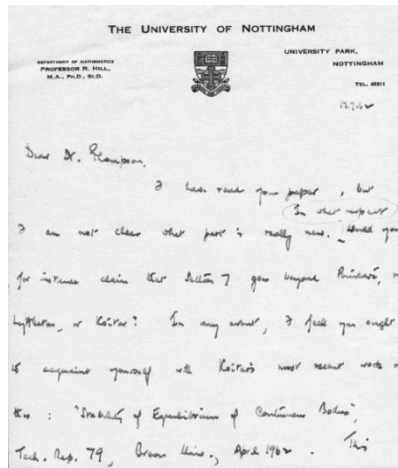 THE UNIVERSITY OF NOTTINGHAM
DEPARTMENT OF MATHEMATICS
PROFESSOR R. HILL,
M.A., PH.D., SC.D.
UNIVERSITY PARK,
NOTTINGHAM
TEL.
Dear Dr. Thompson,
I have read your paper, but
In what respect
I am not clear what part is really new. Would you
for instance claim that Section 7 goes beyond Poincaré, or
Lyttleton, or Koiter? In any event, I feel you ought
to acquaint yourself with Koiter's most recent work on
this: "Stability of Equilibrium of Continuous Bodies",
Tech. Rep. 79, Brown Univ., April 1962. This